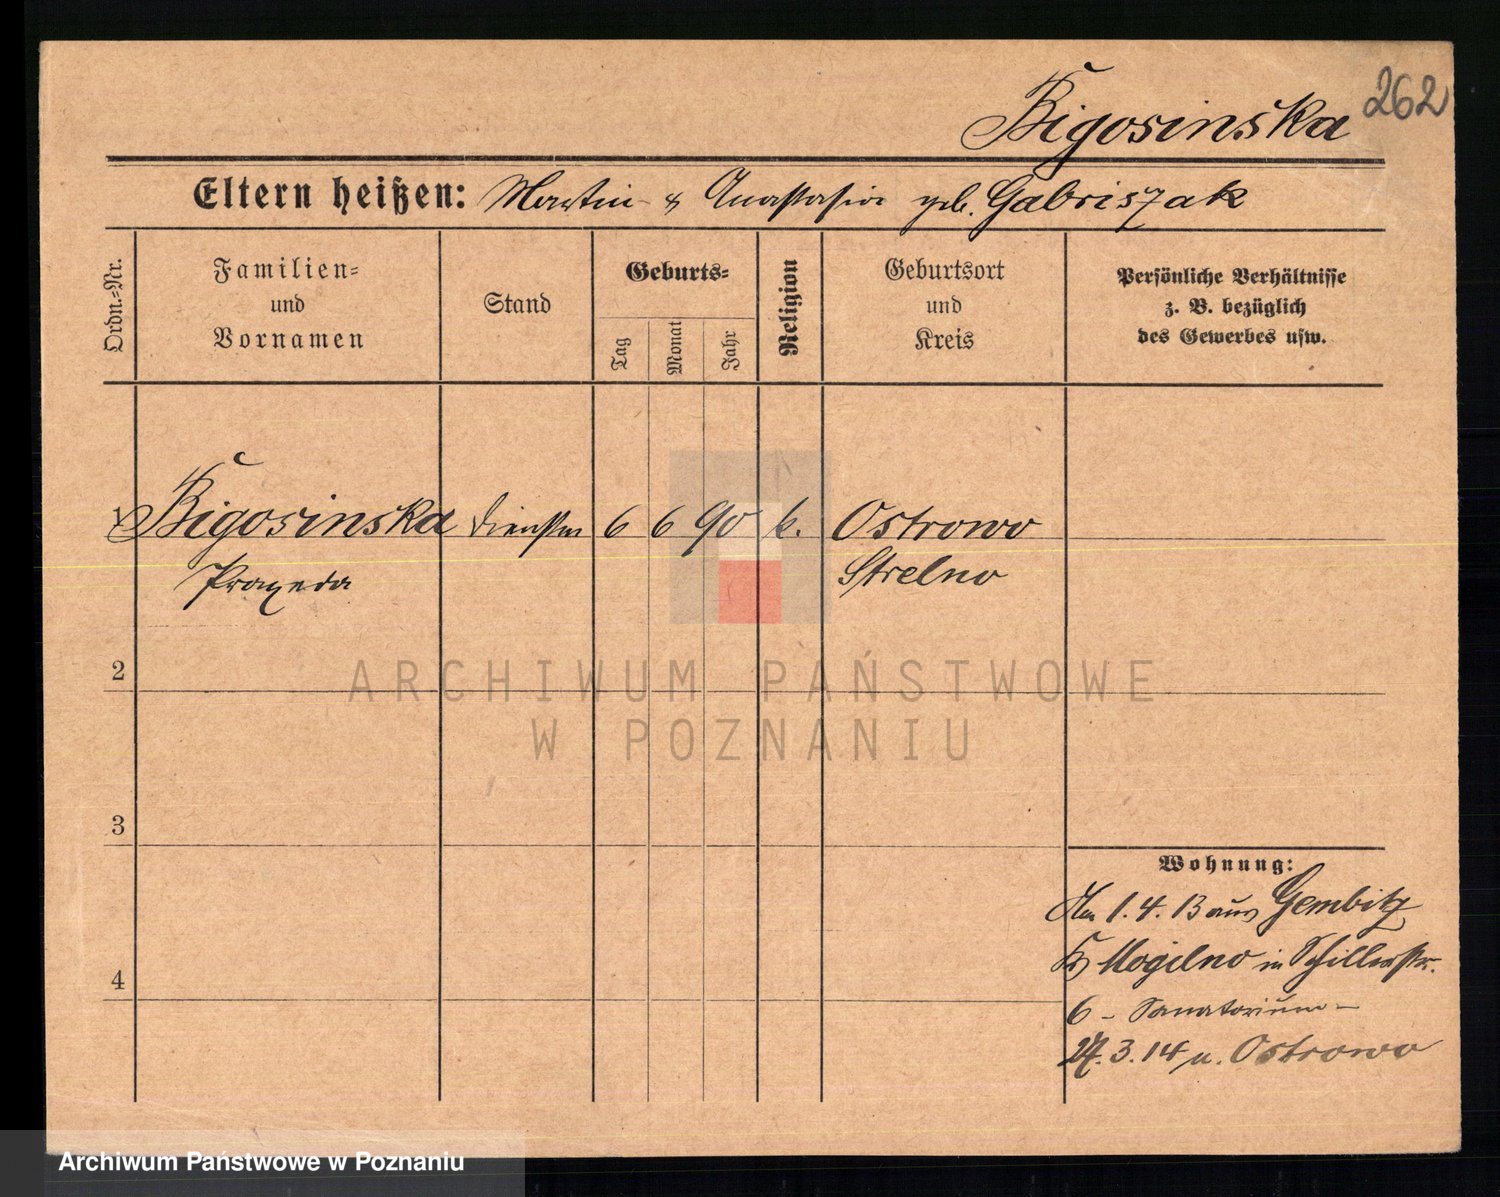 262
Bigosinska
Eltern heißen: Martin & Anastasia geb. Gabriszak
Ordn.-Nr.
Familien-
und
Vornamen
Stand
Geburts-
Tag
Monat
Jahr
Religion
Geburtsort
und
Kreis
Persönliche Verhältnisse
z. B. bezüglich
des Gewerbes usw.
1 Bigosinska 6 6 90 k. Ostrowo
Praxeda Strelno
2
3
4
Wohnung:
Am 1.4.13 aus Gembitz
Kr Mogilno in Schillerstr.
6 - Sanatorium -
27.3.14 n. Ostrowo
ARCHIWUM PAŃSTWOWE
W POZNANIU
Archiwum Państwowe w Poznaniu